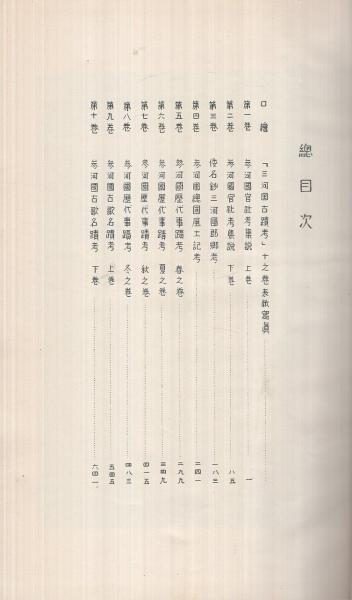 總目次
口繪 「三河国古蹟考」十之巻表紙寫眞
第一巻 参河國官社考集説 上巻 一
第二巻 参河國官社考集説 下巻 八五
第三巻 倭名鈔三河國郡郷考 一八三
第四巻 参河國總國風土記考 二四一
第五巻 参河國歴代事蹟考 春之巻 二九九
第六巻 参河國歴代事蹟考 夏之巻 三四九
第七巻 参河國歴代事蹟考 秋之巻 四一五
第八巻 参河國歴代事蹟考 冬之巻 四八三
第九巻 参河國古歌名蹟考 上巻 五四五
第十巻 参河國古歌名蹟考 下巻 六四一